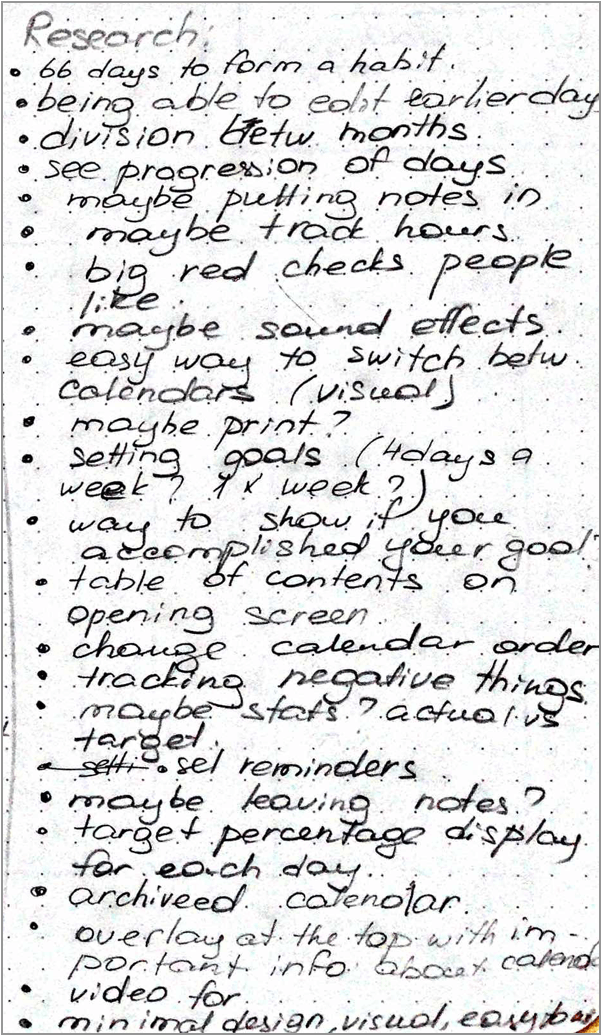 Research:
• 66 days to form a habit.
• being able to edit earlier day
• division betw months
• see progression of days
• maybe putting notes in
• maybe track hours
• big red checks people
like.
• maybe sound effects.
• easy way to switch betw.
calendars (visual)
• maybe print?
• setting goals (4 days a
week? 1 x week?)
• way to show if you
accomplished your goal
• table of contents on
opening screen
• change calendar order
• tracking negative things
• maybe stats? actual vs
target.
• set reminders
• maybe leaving notes?
• target percentage display
for each day.
• archiveed calendar
• overlay at the top with im-
portant info about calend
• video for
• minimal design, visual, easy